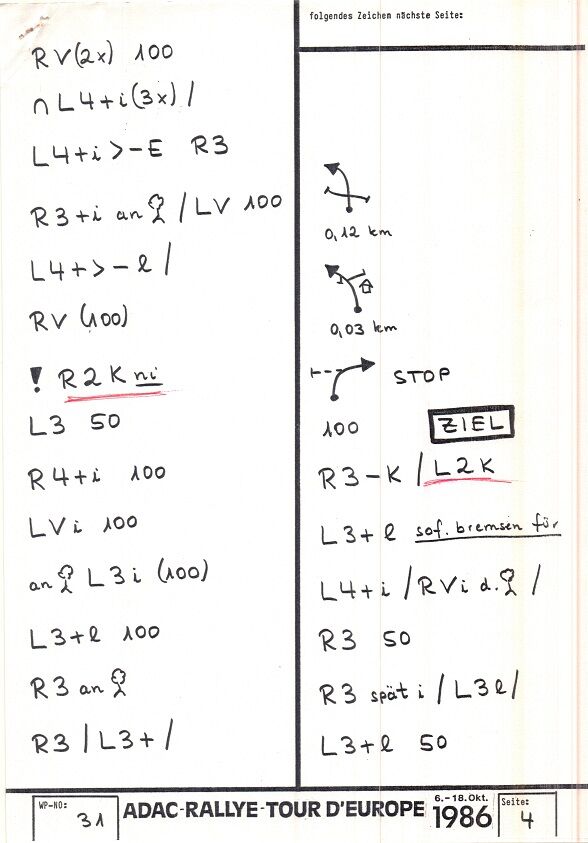 folgendes Zeichen nächste Seite:
RV(2x) 100
∩ L4+i(3x) /
L4+i >-E R3
R3+i an / LV 100
L4+ >- l /
RV (100)
! R2K ni
L3 50
R4+i 100
LVi 100
an L3i (100)
L3+l 100
R3 an
R3 / L3+ /
0,12 km
0,03 km
STOP
100 ZIEL
R3-K / L2K
L3+l sof. bremsen für
L4+i / RVi d. /
R3 50
R3 spät i / L3l /
L3+l 50
WP-NO: 31
ADAC-RALLYE-TOUR D'EUROPE 6.-18.Okt. 1986
Seite: 4